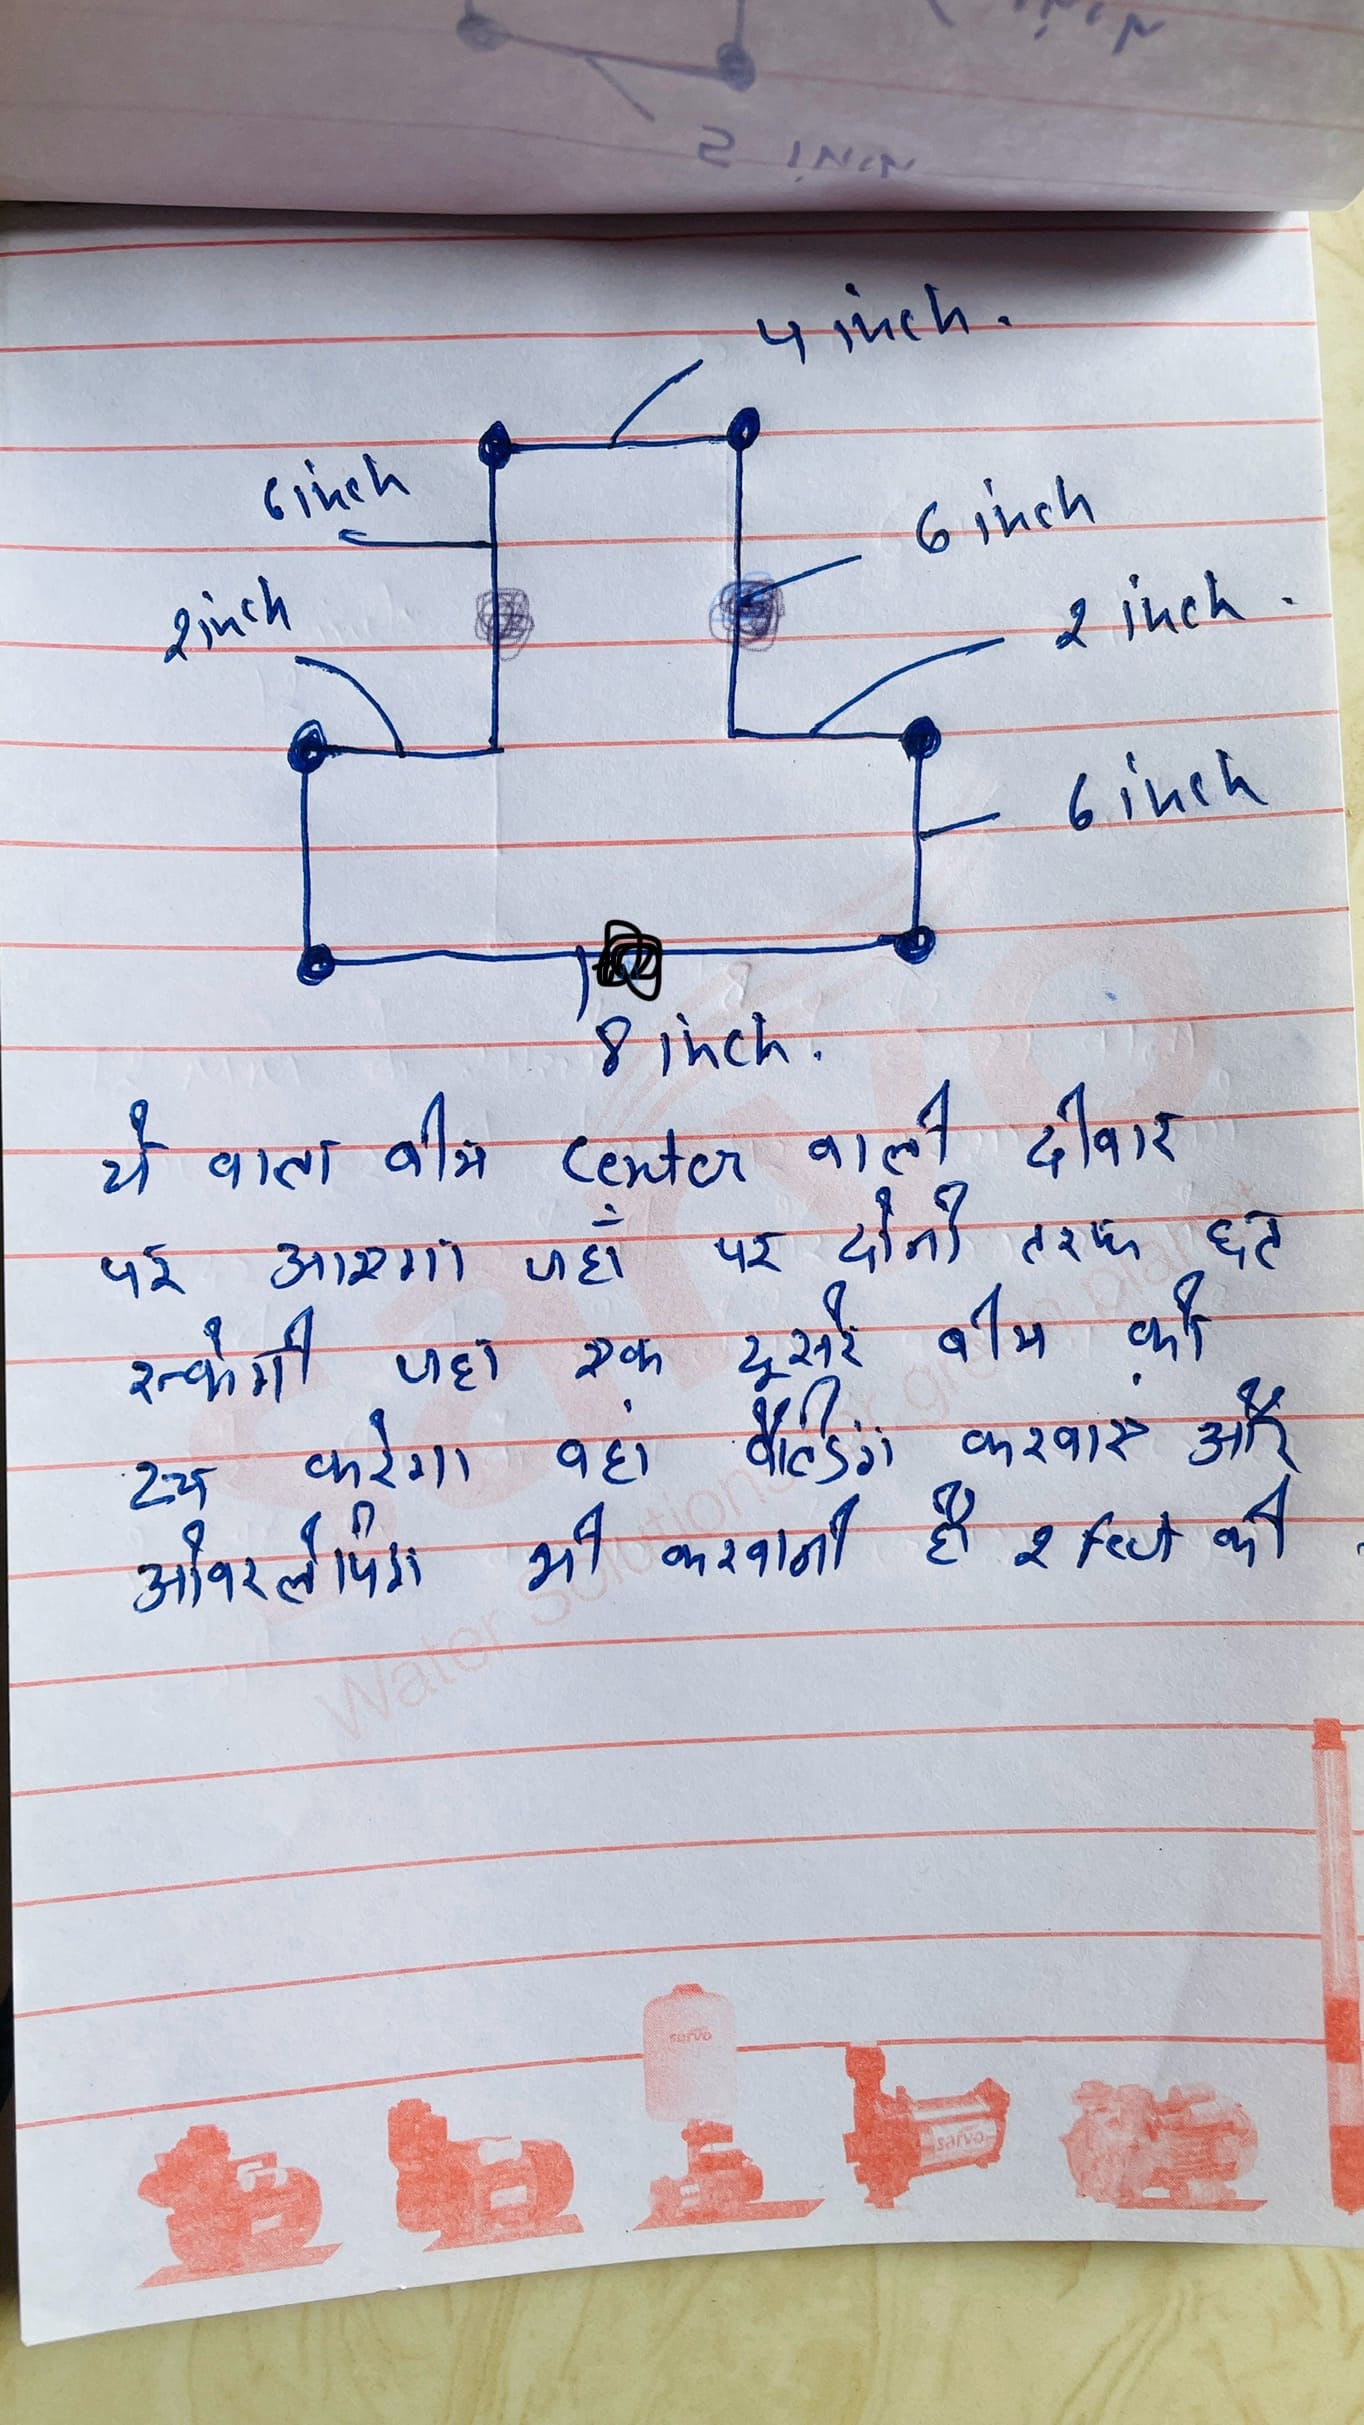 4 inch.
6 inch
6 inch
2 inch
2 inch.
6 inch
8 inch.
ये वाला बीम Center वाली दीवार
पर आएगा जहाँ पर दोनों तरफ छत
रुकेगी जहा एक दूसरे बीम को
टच करेगा वहां वैल्डिंग करवाए और
ओवरलेपिंग भी करवानी है 2 feet की
Water Solutions for green planet
servo
servo